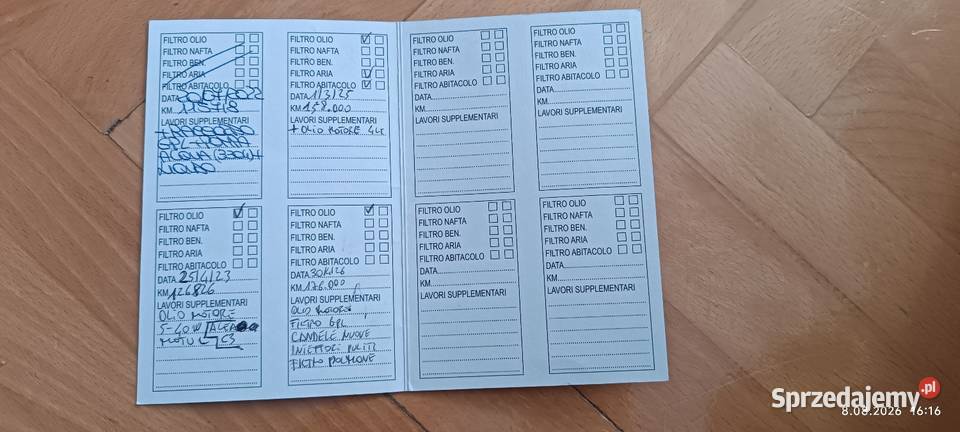 FILTRO OLIO
FILTRO NAFTA
FILTRO BEN.
FILTRO ARIA
FILTRO ABITACOLO
DATA 30/07/2022
KM 115718
LAVORI SUPPLEMENTARI
+ TRASSORSO
GPL + POMPA
ACQUA (330€) +
LIQUIDO
FILTRO OLIO
FILTRO NAFTA
FILTRO BEN.
FILTRO ARIA
FILTRO ABITACOLO
DATA 1/3/25
KM 158.000
LAVORI SUPPLEMENTARI
+ OLIO MOTORE
FILTRO OLIO
FILTRO NAFTA
FILTRO BEN.
FILTRO ARIA
FILTRO ABITACOLO
DATA
KM
LAVORI SUPPLEMENTARI
FILTRO OLIO
FILTRO NAFTA
FILTRO BEN.
FILTRO ARIA
FILTRO ABITACOLO
DATA
KM
LAVORI SUPPLEMENTARI
FILTRO OLIO
FILTRO NAFTA
FILTRO BEN.
FILTRO ARIA
FILTRO ABITACOLO
DATA 25/4/23
KM 126826
LAVORI SUPPLEMENTARI
OLIO MOTORE
5-40W ACEA
MOTUL C3
FILTRO OLIO
FILTRO NAFTA
FILTRO BEN.
FILTRO ARIA
FILTRO ABITACOLO
DATA
KM 176.000
LAVORI SUPPLEMENTARI
OLIO MOTORE
FILTRO GPL
CANDELE NUOVE
INIETTORI PULITI
FILTRO POLMONE
FILTRO OLIO
FILTRO NAFTA
FILTRO BEN.
FILTRO ARIA
FILTRO ABITACOLO
DATA
KM
LAVORI SUPPLEMENTARI
FILTRO OLIO
FILTRO NAFTA
FILTRO BEN.
FILTRO ARIA
FILTRO ABITACOLO
DATA
KM
LAVORI SUPPLEMENTARI
Sprzedajemy.pl
8.08.2026 16:16